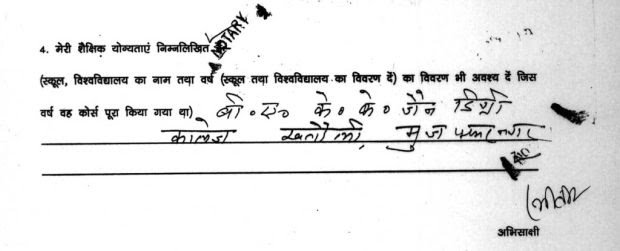 4. मेरी शैक्षिक योग्यताएं निम्नलिखित
NOTARY
(स्कूल, विश्वविद्यालय का नाम तथा वर्ष (स्कूल तथा विश्वविद्यालय का विवरण दें) का विवरण भी अवश्य दें जिस
वर्ष वह कोर्स पूरा किया गया था) बी॰ ए॰ के॰ के॰ जैन डिग्री
कालेज खतौली, मुजफ्फरनगर
अभिसाक्षी